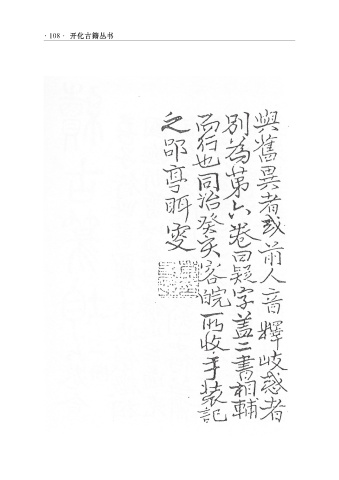 · 108 · 开化古籍丛书
與舊異者或前人音釋歧惑者
別為第六卷曰疑字蓋二書相輔
而行也同治癸亥客皖所收手裝記
之郘亭眲叟